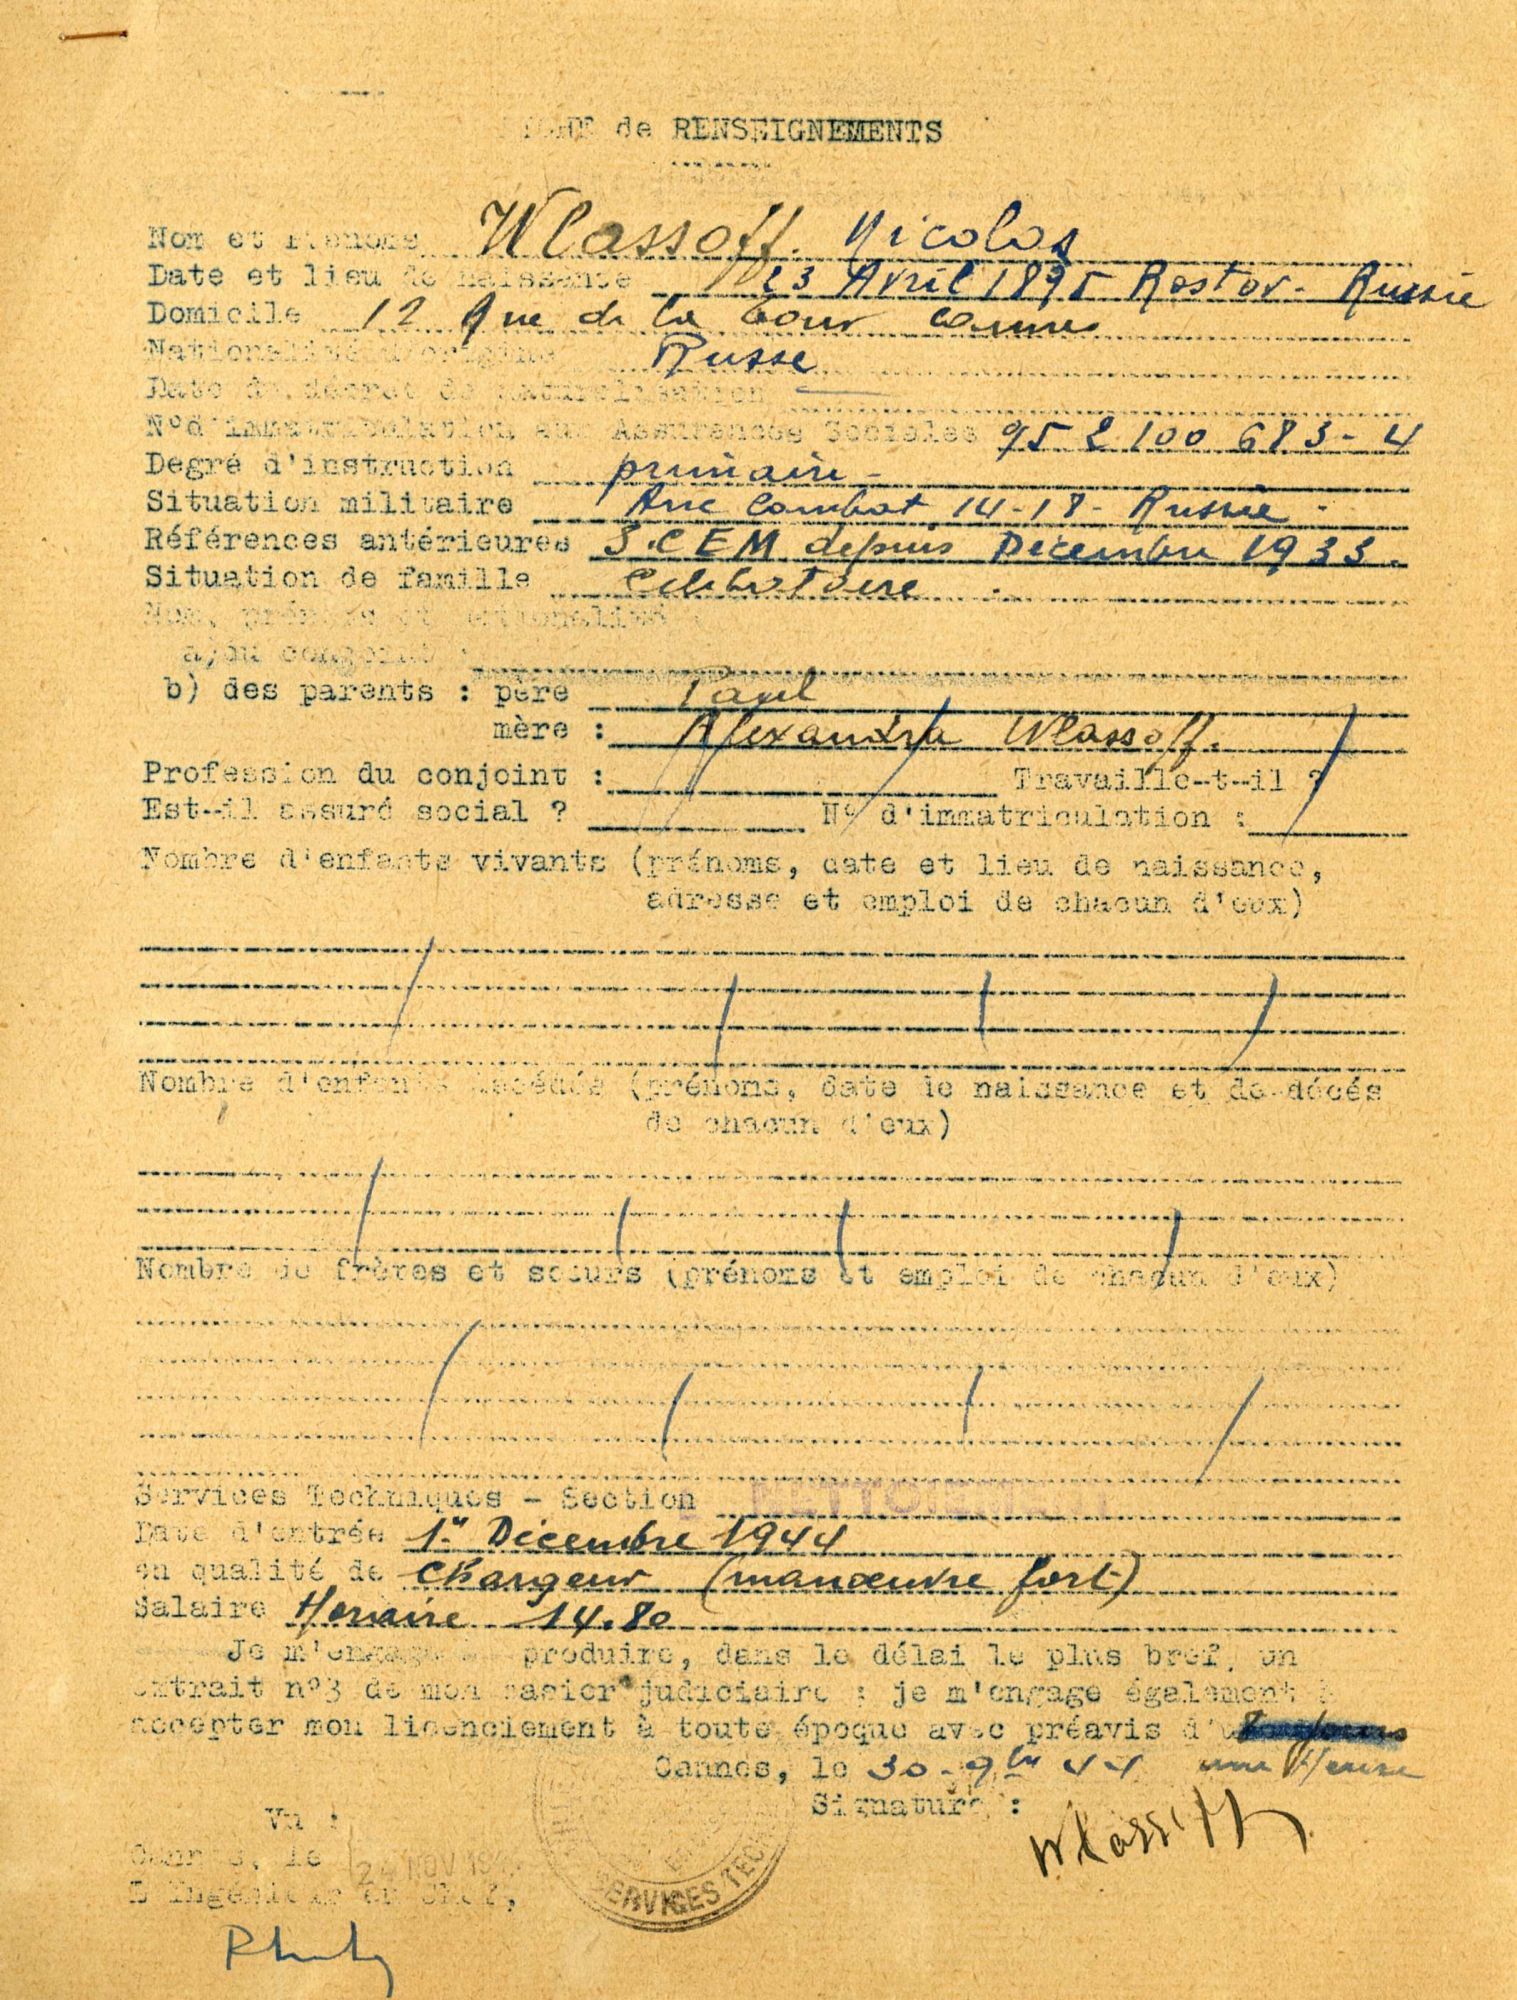 FICHE de RENSEIGNEMENTS
Nom et Prénoms Wlassoff. Nicolas
Date et lieu de naissance 23 Avril 1895 Rostov - Russie
Domicile 12 Rue de la Tour Cannes
Nationalité d'origine Russe
Date du décret de naturalisation —
N°d'immatriculation aux Assurances Sociales 95 2 100 683-4
Degré d'instruction primaire -
Situation militaire Anc Combat. 14-18 - Russie -
Références antérieures S.C.E.M depuis Décembre 1933.
Situation de famille Célibataire .
Nom, prénoms et nationalité :
a)du conjoint :
b) des parents : père Paul
mère : Alexandra Wlassoff.
Profession du conjoint : Travaille-t-il ?
Est-il assuré social ? N° d'immatriculation :
Nombre d'enfants vivants (prénoms, date et lieu de naissance,
adresse et emploi de chacun d'eux)
Nombre d'enfants décédés (prénoms, date de naissance et de décés
de chacun d'eux)
Nombre de frères et soeurs (prénoms et emploi de chacun d'eux)
Services Techniques - Section NETTOIEMENT
Date d'entrée 1er Décembre 1944
en qualité de Chargeur (manœuvre fort)
Salaire Horaire 14.80
Je m'engage à produire, dans le délai le plus bref, un
extrait n°3 de mon casier judiciaire : je m'engage également à
accepter mon licenciement à toute époque avec préavis d'
Cannes, le 30-9bre 44 une Heure
Signature : Wlassoff
Vu :
Cannes, le 24 NOV 194
L'Ingénieur en Chef,
SERVICES TECH